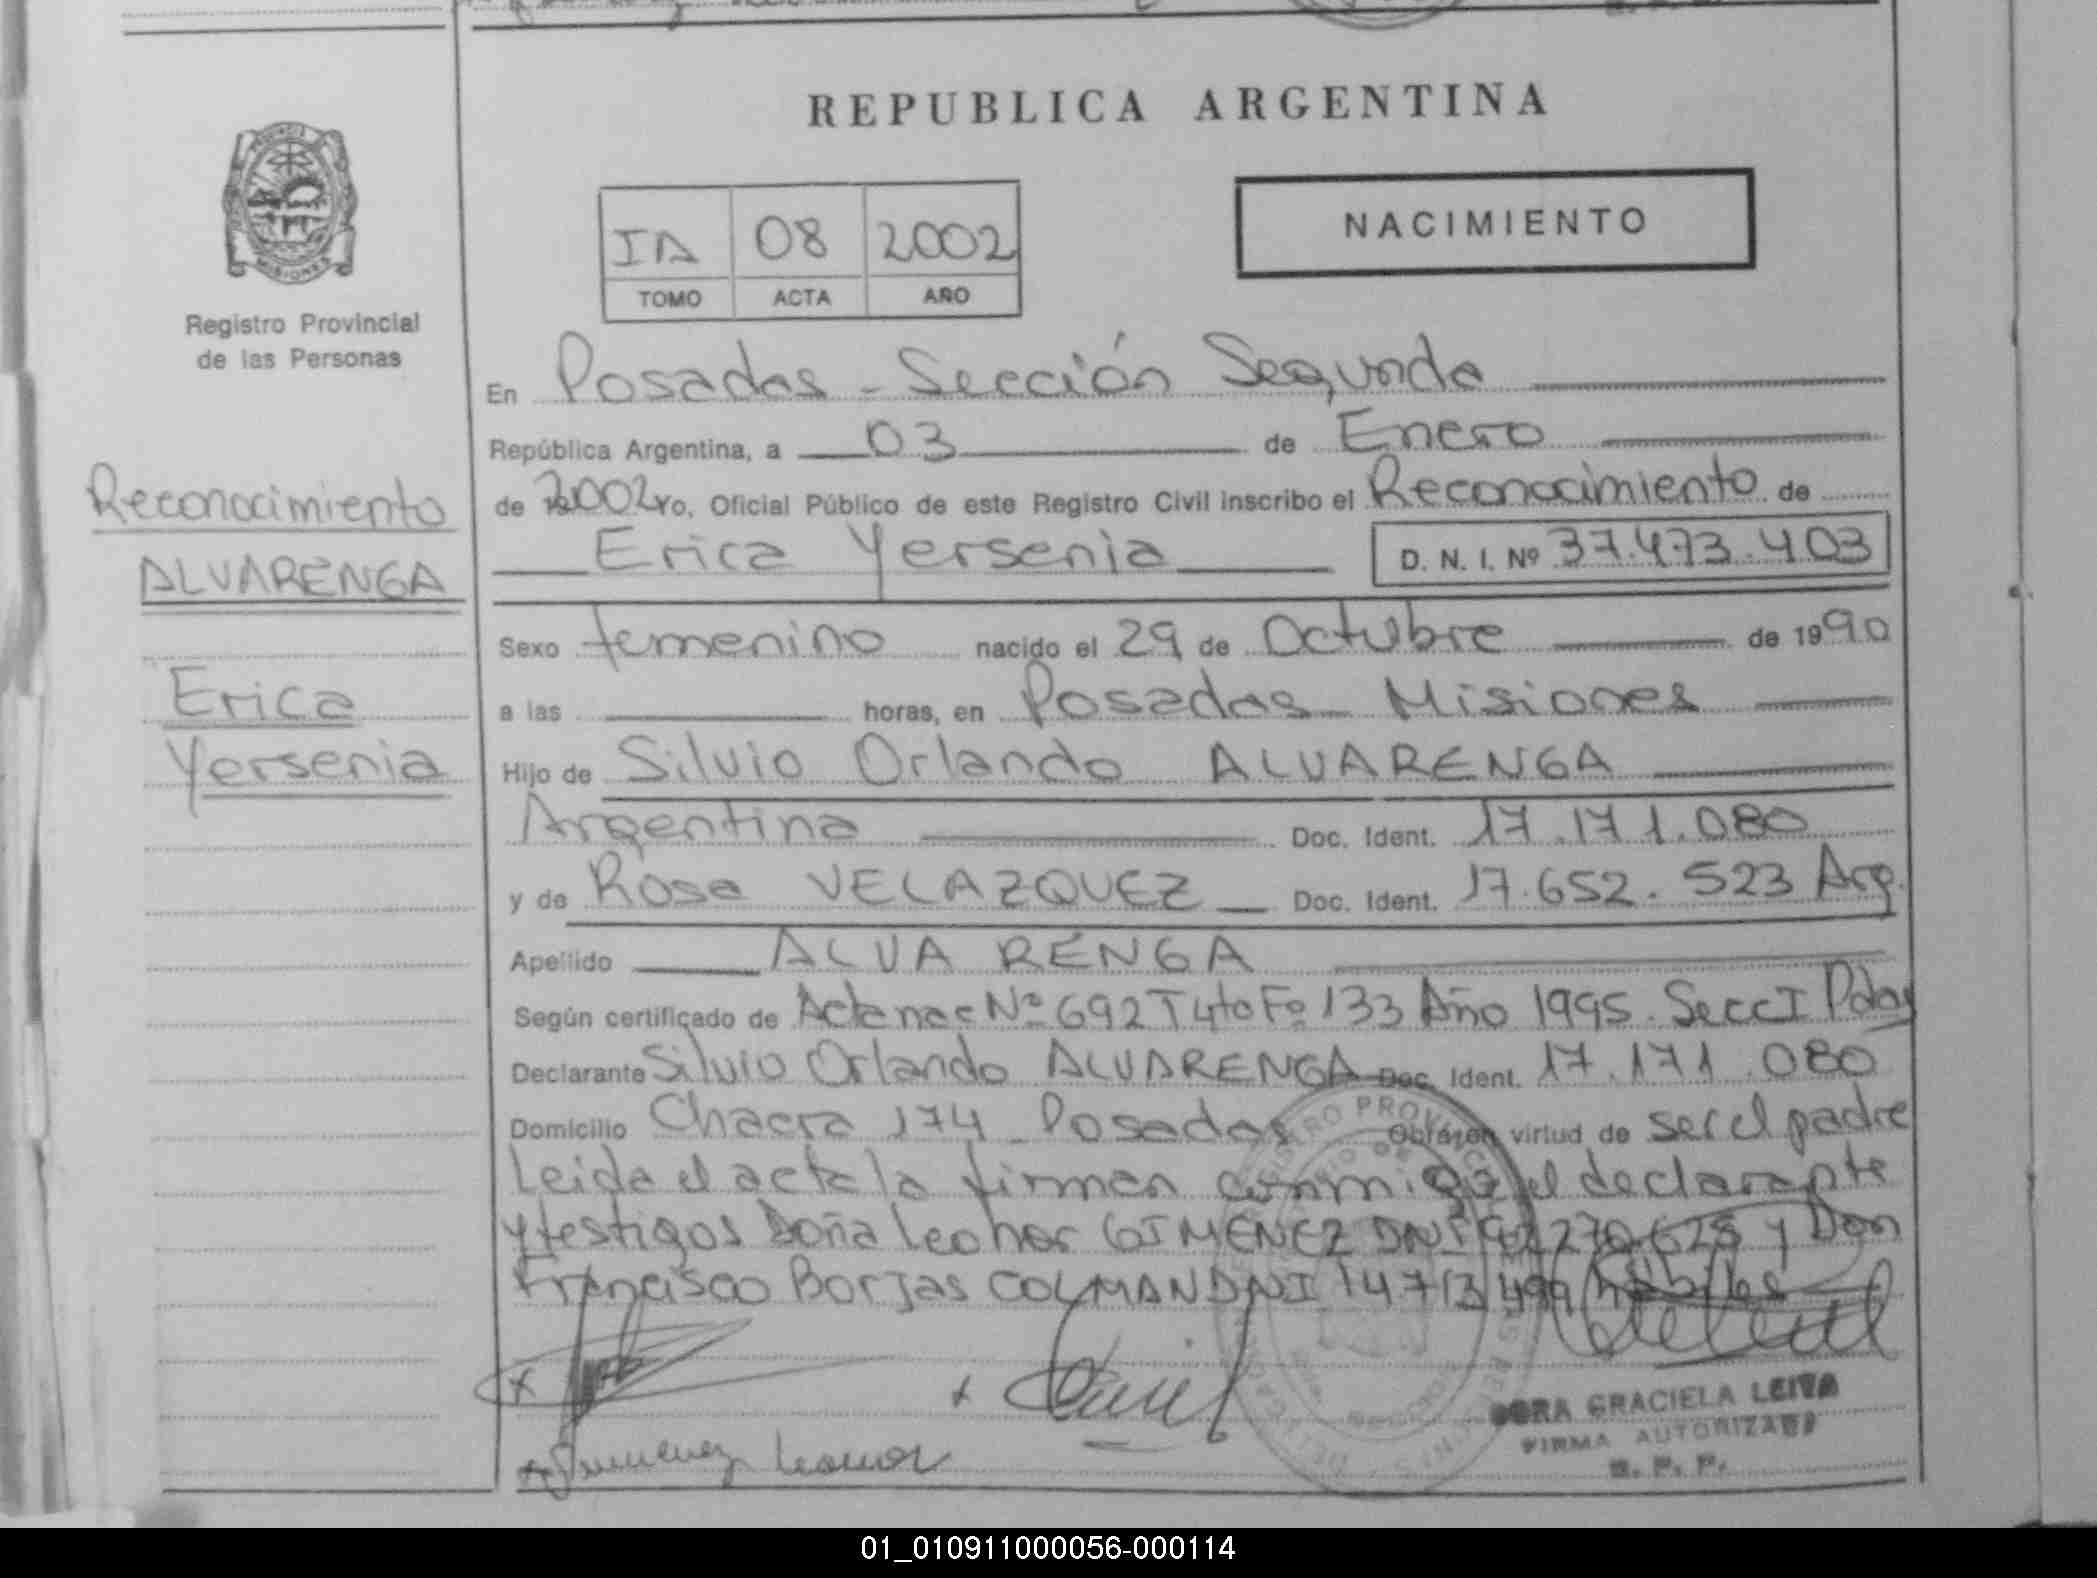 REPUBLICA ARGENTINA
PROVINCIA
MISIONES
Registro Provincial
de las Personas
IA 08 2002
TOMO ACTA AÑO
NACIMIENTO
En Posadas - Sección Segunda
República Argentina, a 03 de Enero
de 2002 yo, Oficial Público de este Registro Civil inscribo el Reconocimiento de
Erica Yersenia D. N. I. Nº 37.473.403
Reconocimiento
ALVARENGA
Erica
Yersenia
Sexo femenino nacido el 29 de Octubre de 1990
a las horas, en Posadas Misiones
Hijo de Silvio Orlando ALVARENGA
Argentina Doc. Ident. 17.171.080
y de Rosa VELAZQUEZ Doc. Ident. 17.652.523 Arg.
Apellido ALVARENGA
Según certificado de Acta nac Nº 692 T 4to Fº 133 Año 1995. Secc I Pdas
Declarante Silvio Orlando ALVARENGA Doc. Ident. 17.171.080
Domicilio Chacra 174 Posadas Obra en virtud de ser el padre
Leida el acta la firman conmigo el declarante
y testigos Doña Leonor GIMENEZ DNI y Don
Francisco Borjas COLMAN DNI 14713499 hábiles
x
x
x Gimenez Leonor
GRACIELA LEIVA
FIRMA AUTORIZADA
R. P. P.
01_010911000056-000114